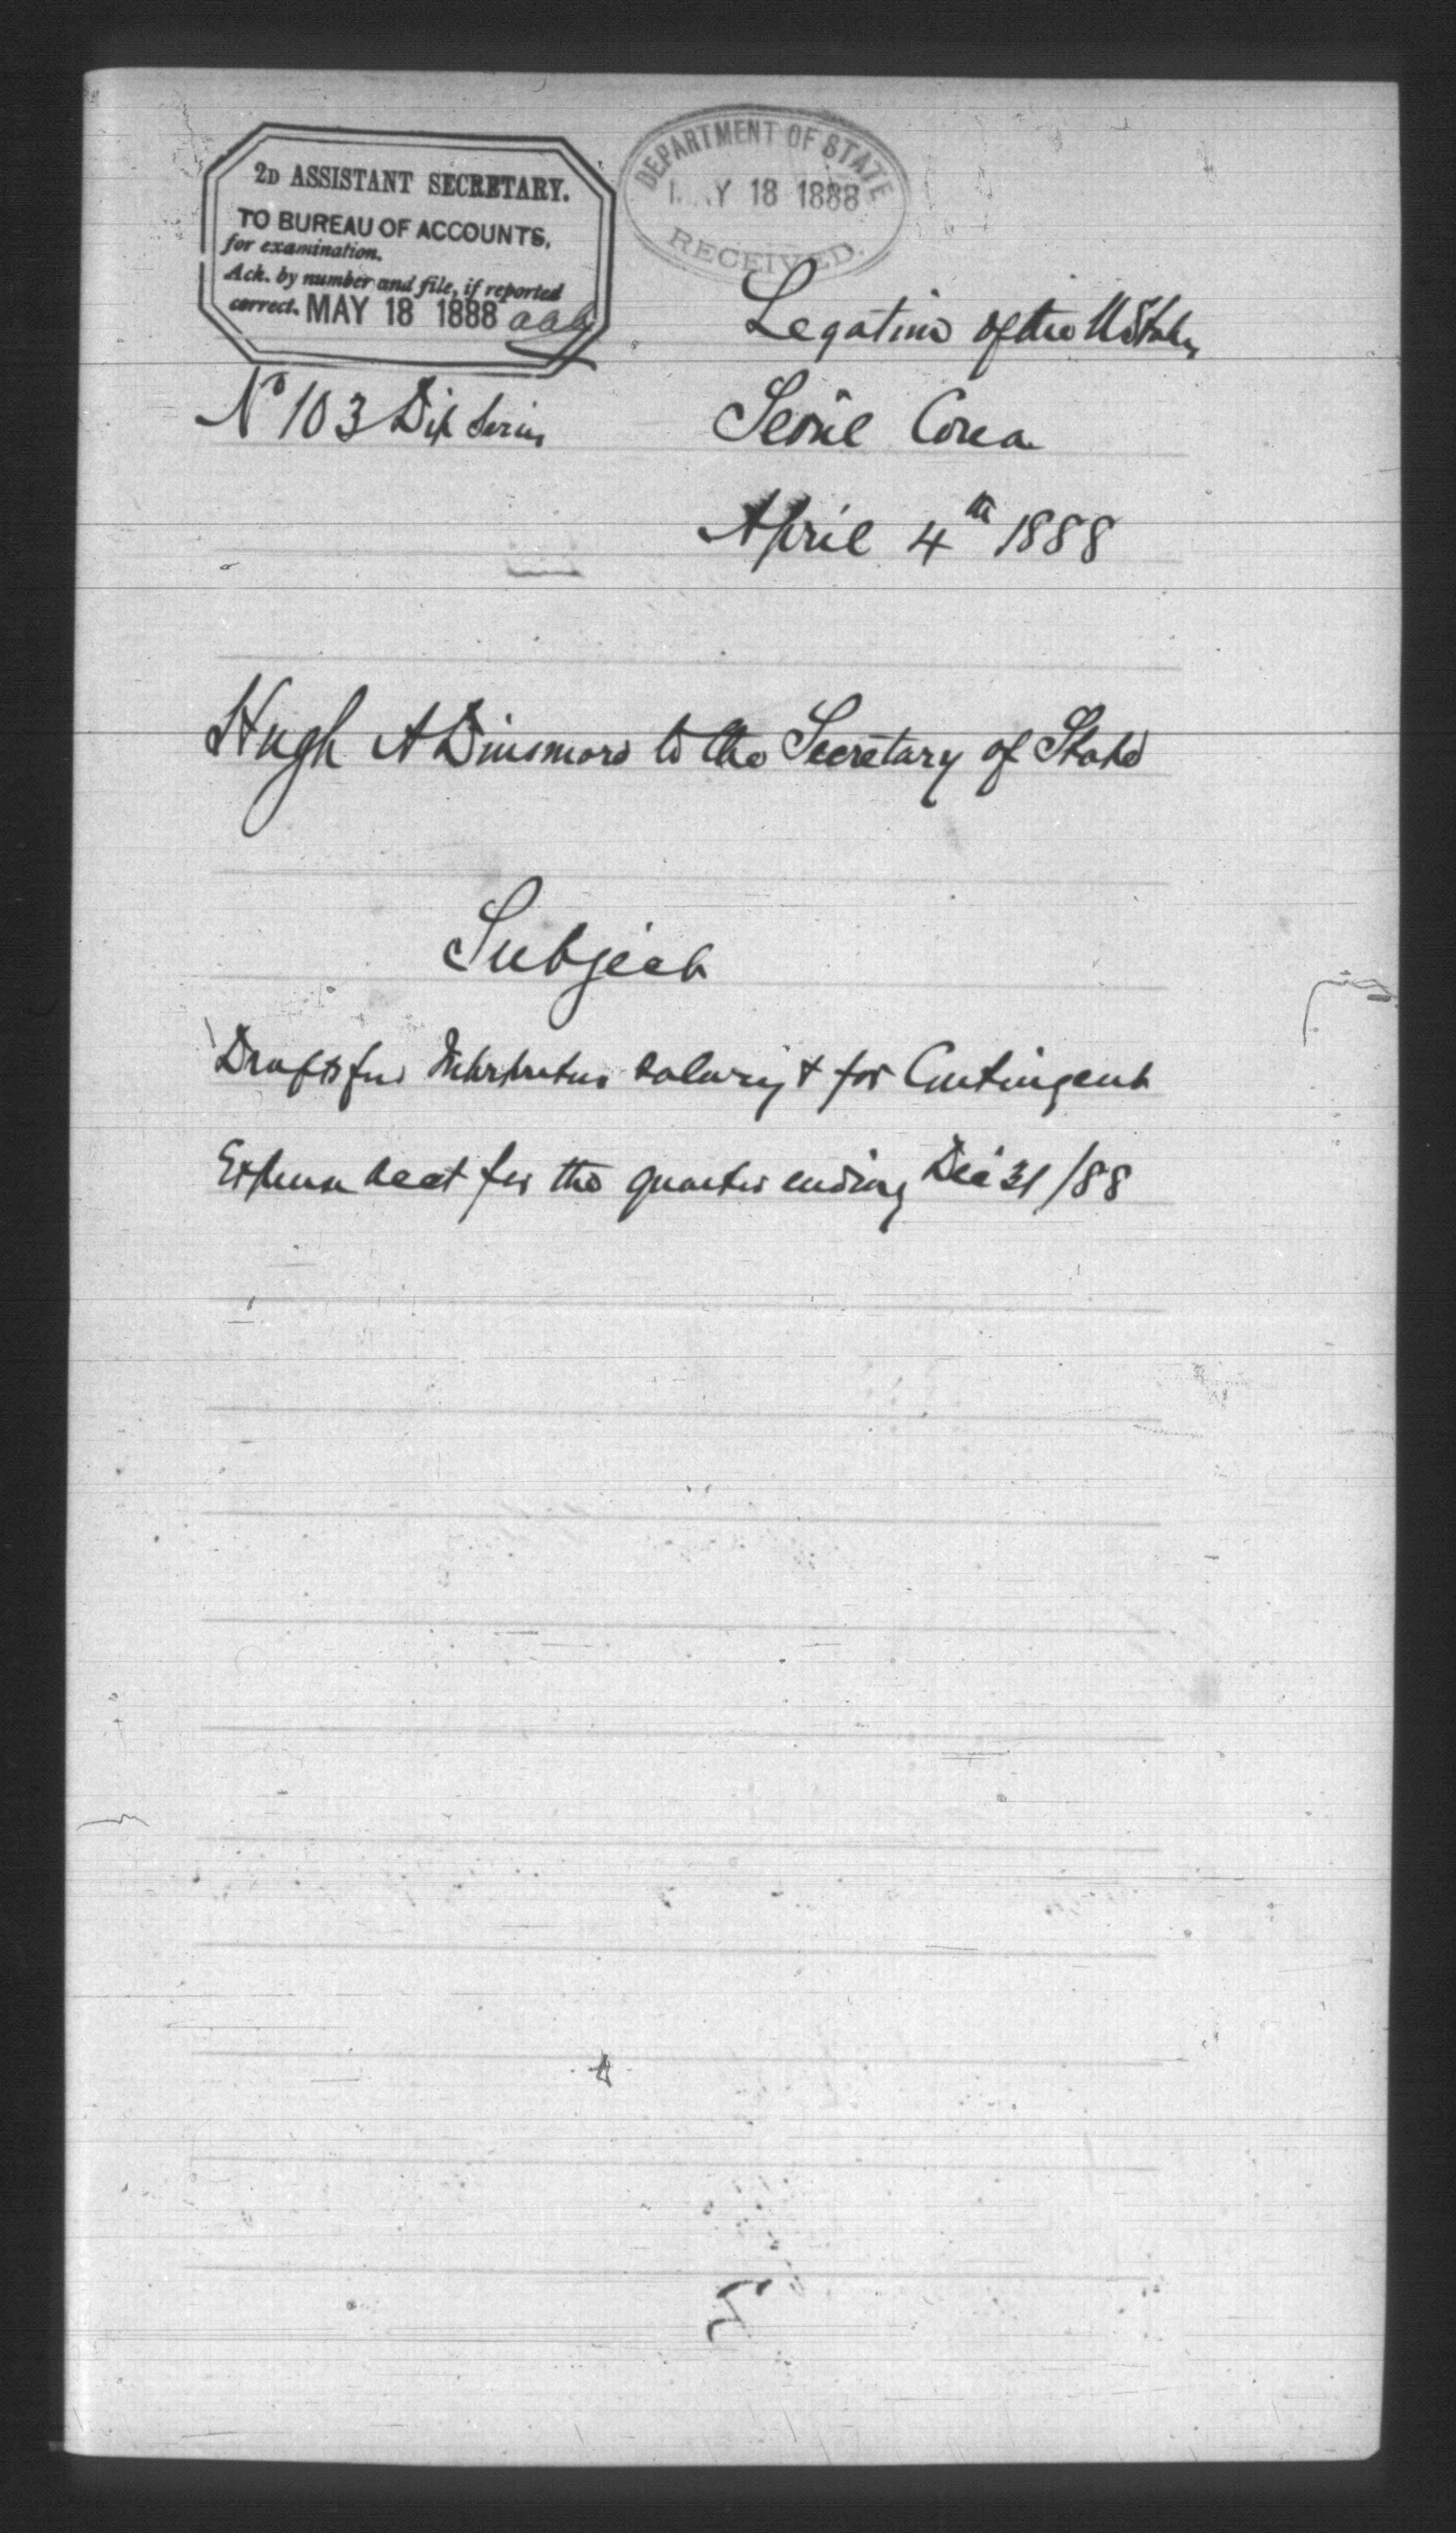 2D ASSISTANT SECRETARY.
TO BUREAU OF ACCOUNTS,
for examination.
Ack. by number and file, if reported
correct. MAY 18 1888 aaa
DEPARTMENT OF STATE
MAY 18 1888
RECEIVED.
Legation of the U States
No 103 Dip Series
Seoul Corea
April 4th 1888
Hugh A Dinsmore to the Secretary of State
Subject
Drafts for Interpreters Salary & for Contingent
Expense acct for the quarter ending Dec 31/88
5